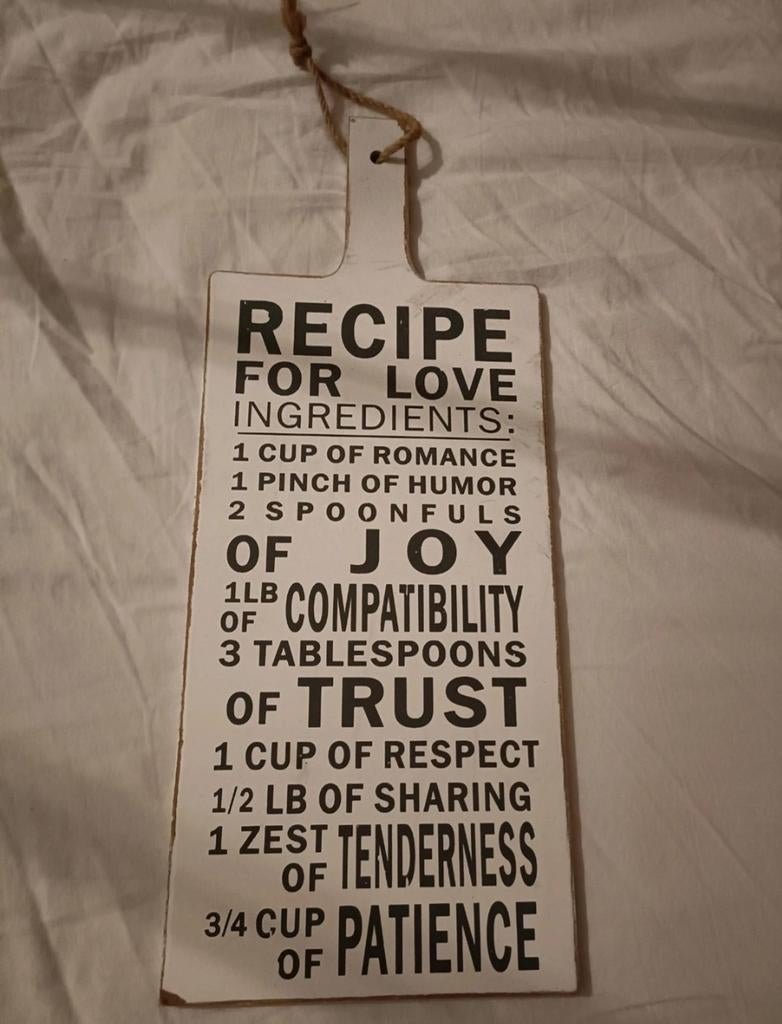 RECIPE
FOR LOVE
INGREDIENTS:
1 CUP OF ROMANCE
1 PINCH OF HUMOR
2 SPOONFULS
OF JOY
1LB
OF COMPATIBILITY
3 TABLESPOONS
OF TRUST
1 CUP OF RESPECT
1/2 LB OF SHARING
1 ZEST
OF TENDERNESS
3/4 CUP
OF PATIENCE